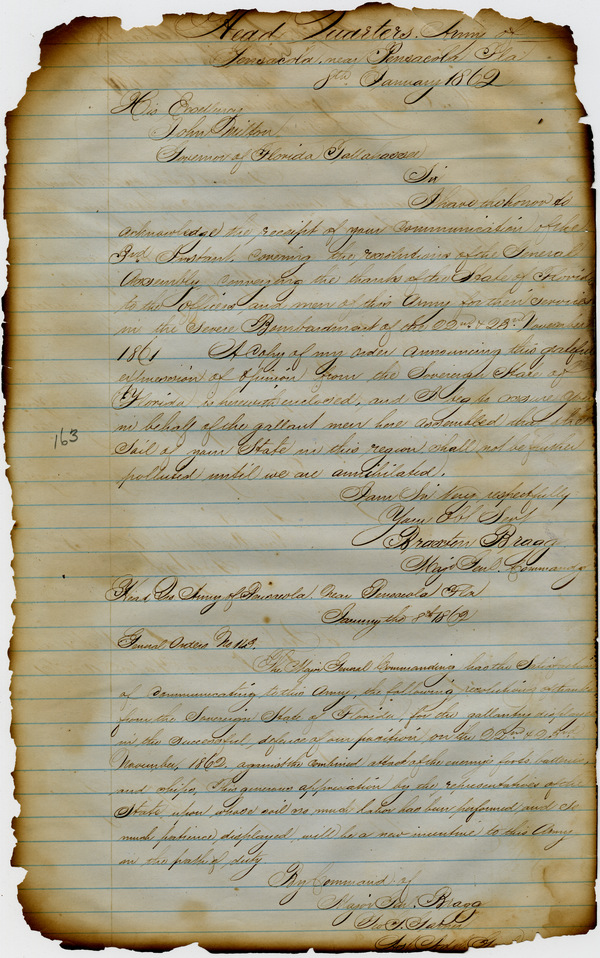 Head Quarters, Army of
Pensacola, near Pensacola Fla
8th January 1862
His Excellency
John Milton
Governor of Florida Tallahassee
Sir
I have the honor to
acknowledge the receipt of your Communication of the
3rd Instant, covering the resolutions of the General
Assembly conveying the thanks of the State of Florida
to the Officers and men of this Army for their services
in the Severe Bombardment of the 22nd & 23rd November
1861 A Copy of my order announcing this grateful
expression of opinion from the Sovereign State of
Florida is herewith enclosed, and I beg to assure you
in behalf of the gallant men here assembled that the
Soil of your State in this region shall not be further
polluted until we are annihilated.
I am Sir Very respectfully
Your Obt Servt
Braxton Bragg
Majr Genl. Commandg
163
Head Qrs Army of Pensacola, Near Pensacola Fla
January the 8th 1862
General Orders No 143.
The Major General Commanding has the Satisfaction
of communicating to this Army, the following resolutions of thanks
from the Sovereign State of Florida, for the gallantry displayed
in the successful defence of our position, on the 22nd & 23rd
November, 1862, against the combined attack of the enemies forts batteries
and ships. This generous appreciation by the representatives of the
State, upon whose soil so much labor has been performed, and so
much patience displayed, will be a new incentive to this Army
in the path of duty
By Command of
Major Gen. Bragg
Geo. G. Garner